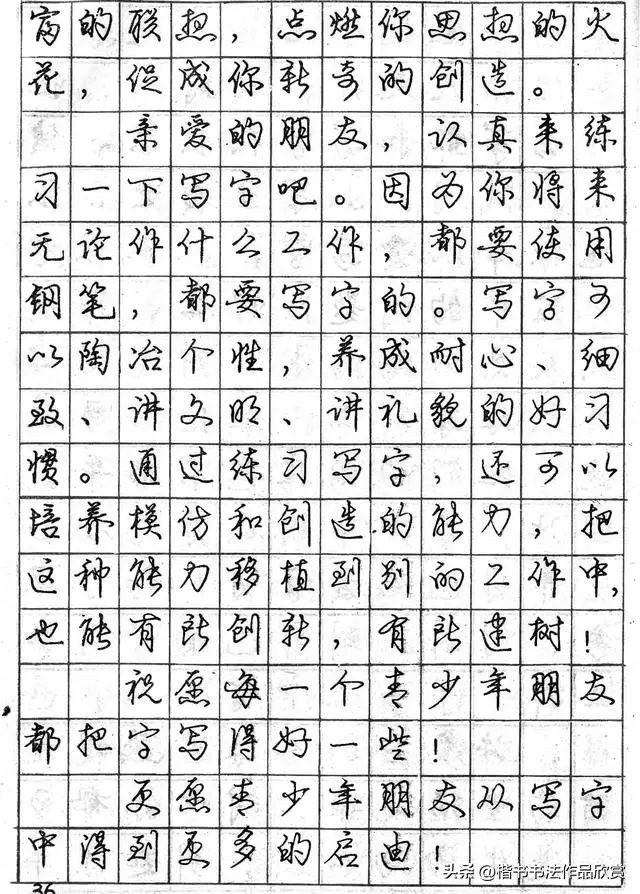 富的联想，点燃你思想的火
花，促成你新奇的创造。
亲爱的朋友，认真来练
习一下写字吧。因为你将来
无论作什么工作，都要使用
钢笔，都要写字的。写字可
以陶冶个性，养成耐心、细
致、讲文明、讲礼貌的好习
惯。通过练习写字，还可以
培养模仿和创造的能力，把
这种能力移植到别的工作中，
也能有所创新，有所建树！
祝愿每一个青少年朋友
都把字写得好一些！
更愿青少年朋友从写字
中得到更多的启迪！
36
头条@楷书书法作品欣赏